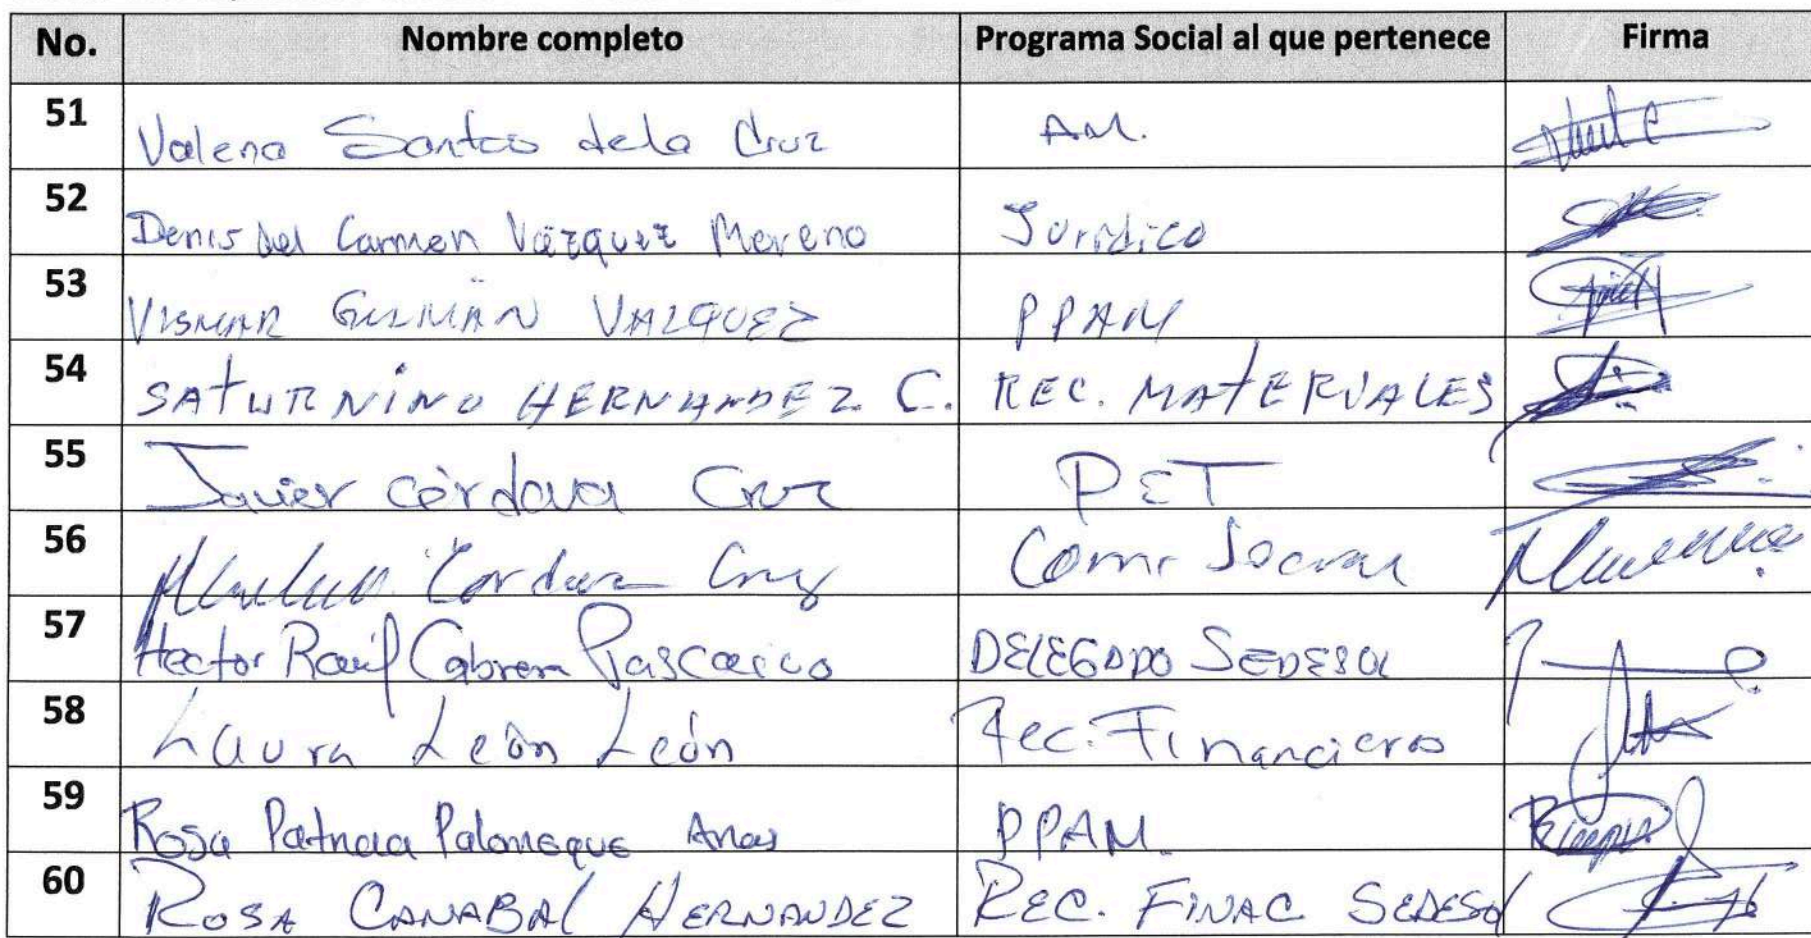 No. Nombre completo Programa Social al que pertenece Firma
51 Valeria Santos de la Cruz A.M.
52 Denis del Carmen Vázquez Moreno Jurídico
53 VISMAR GUZMÁN VAZQUEZ PPAM
54 SATURNINO HERNANDEZ C. REC. MATERIALES
55 Javier Córdova Cruz PET
56 Cordova Cruz Com. Social
57 Hector Raúl Cabrera Pascacio DELEGADO SEDESOL
58 Laura León León Rec. Financieros
59 Rosa Patricia Palomeque Arias PPAM.
60 ROSA CANABAL HERNANDEZ REC. FINAC. SEDESOL